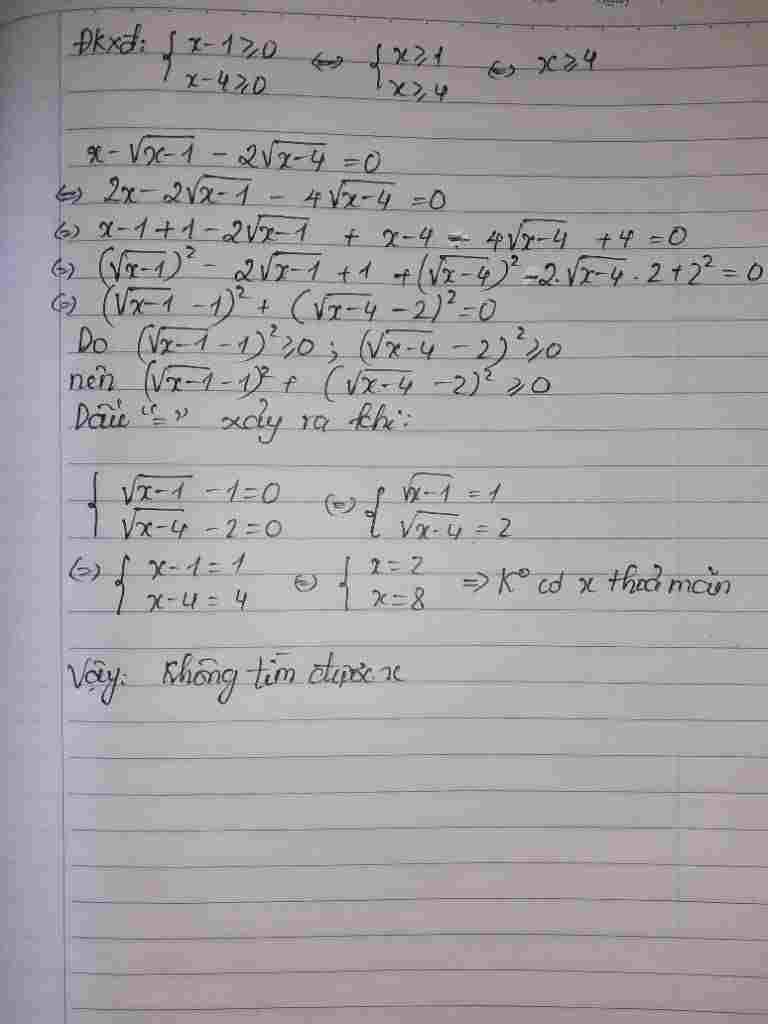 Đkxđ: { x-1≥0 x-4≥0 ⇔ { x≥1 x≥4 ⇔ x≥4
x-√(x-1) - 2√(x-4) = 0
⇔ 2x - 2√(x-1) - 4√(x-4) = 0
⇔ x-1+1-2√(x-1) + x-4 - 4√(x-4) +4 = 0
⇔ (√(x-1))² - 2√(x-1) +1 +(√(x-4))² -2.√(x-4) . 2+2² = 0
⇔ (√(x-1) -1)² + (√(x-4) -2)² = 0
Do (√(x-1) -1)² ≥0 ; (√(x-4) -2)² ≥0
nên (√(x-1) -1)² + (√(x-4) -2)² ≥0
Dấu "=" xảy ra khi:
{ √(x-1) -1=0 √(x-4) -2=0 ⇔ { √(x-1) = 1 √(x-4) = 2
⇔ { x-1 = 1 x-4 = 4 ⇔ { x=2 x=8 ⇒ K° có x thoả mãn
Vậy: Không tìm được x